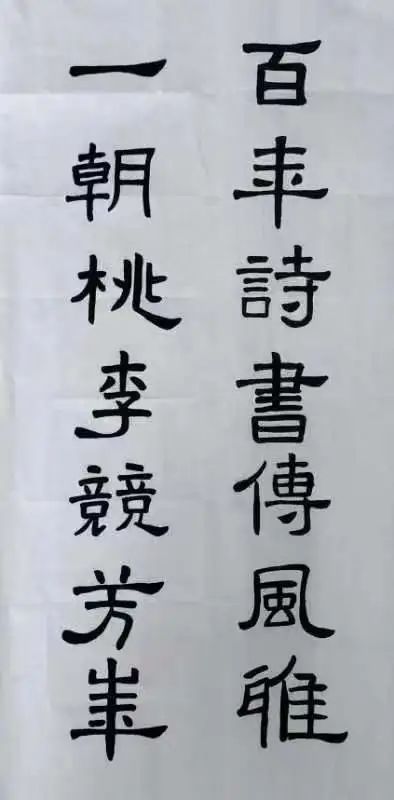 百年詩書傳風雅
一朝桃李競芳華